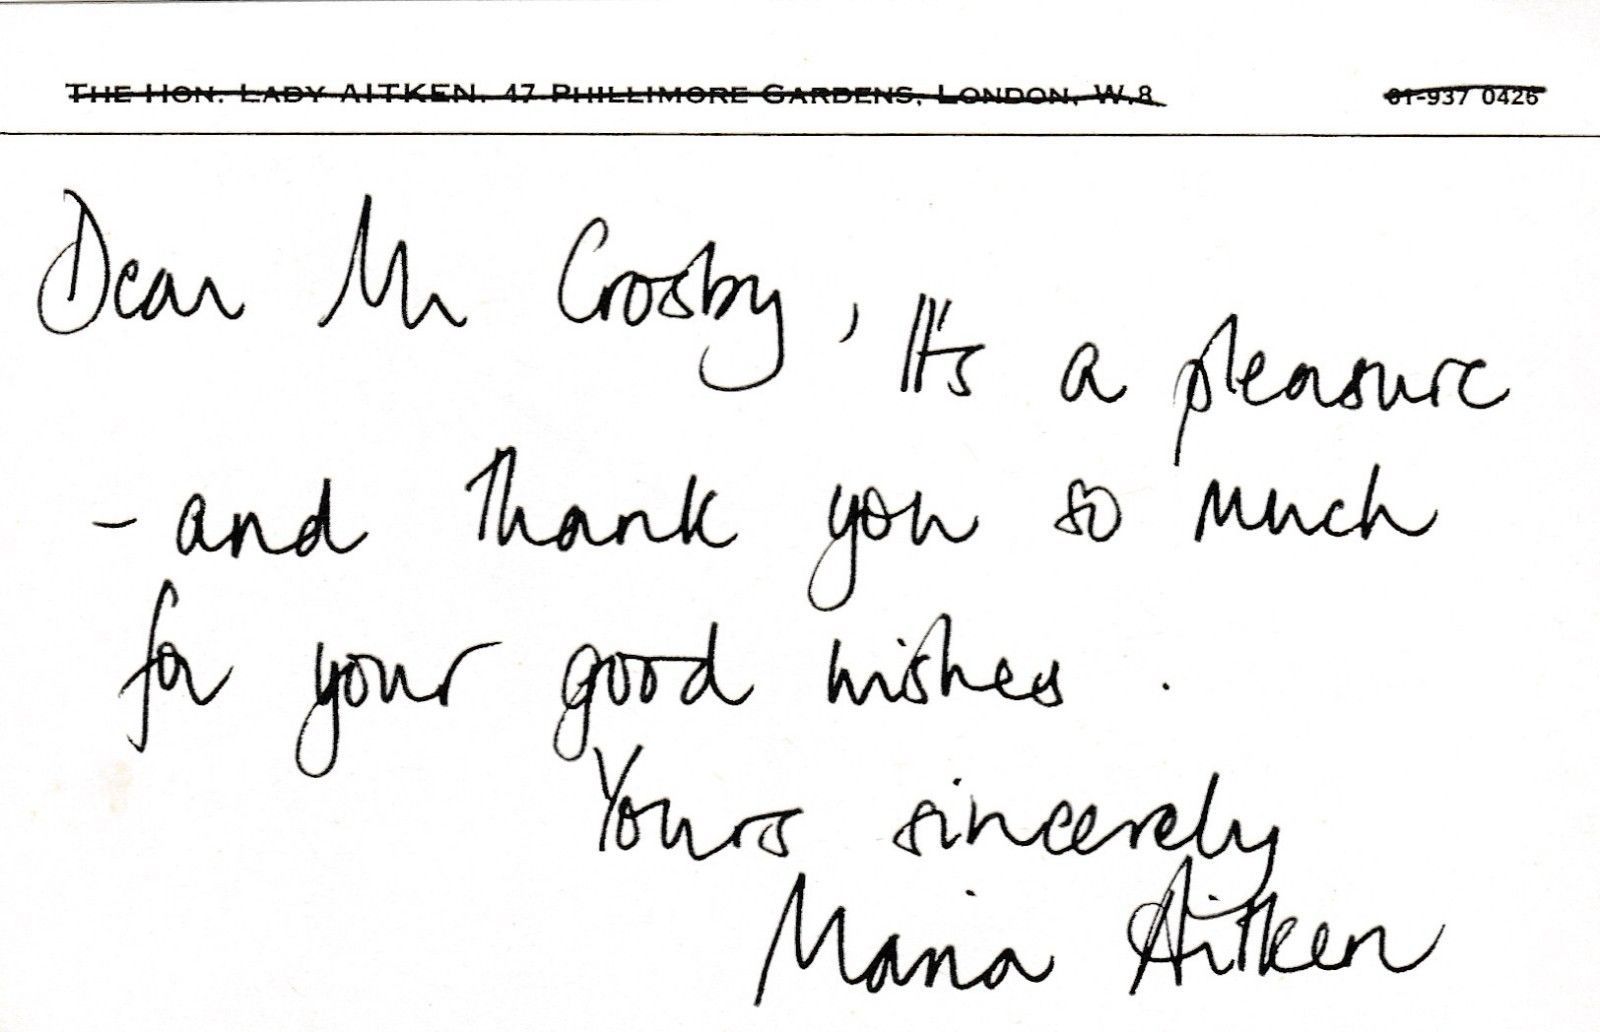 THE HON. LADY AITKEN, 47 PHILLIMORE GARDENS, LONDON, W.8 01-937 0426
Dear Mr Crosby, It's a pleasure
- and thank you so much
for your good wishes.
Yours sincerely
Maria Aitken